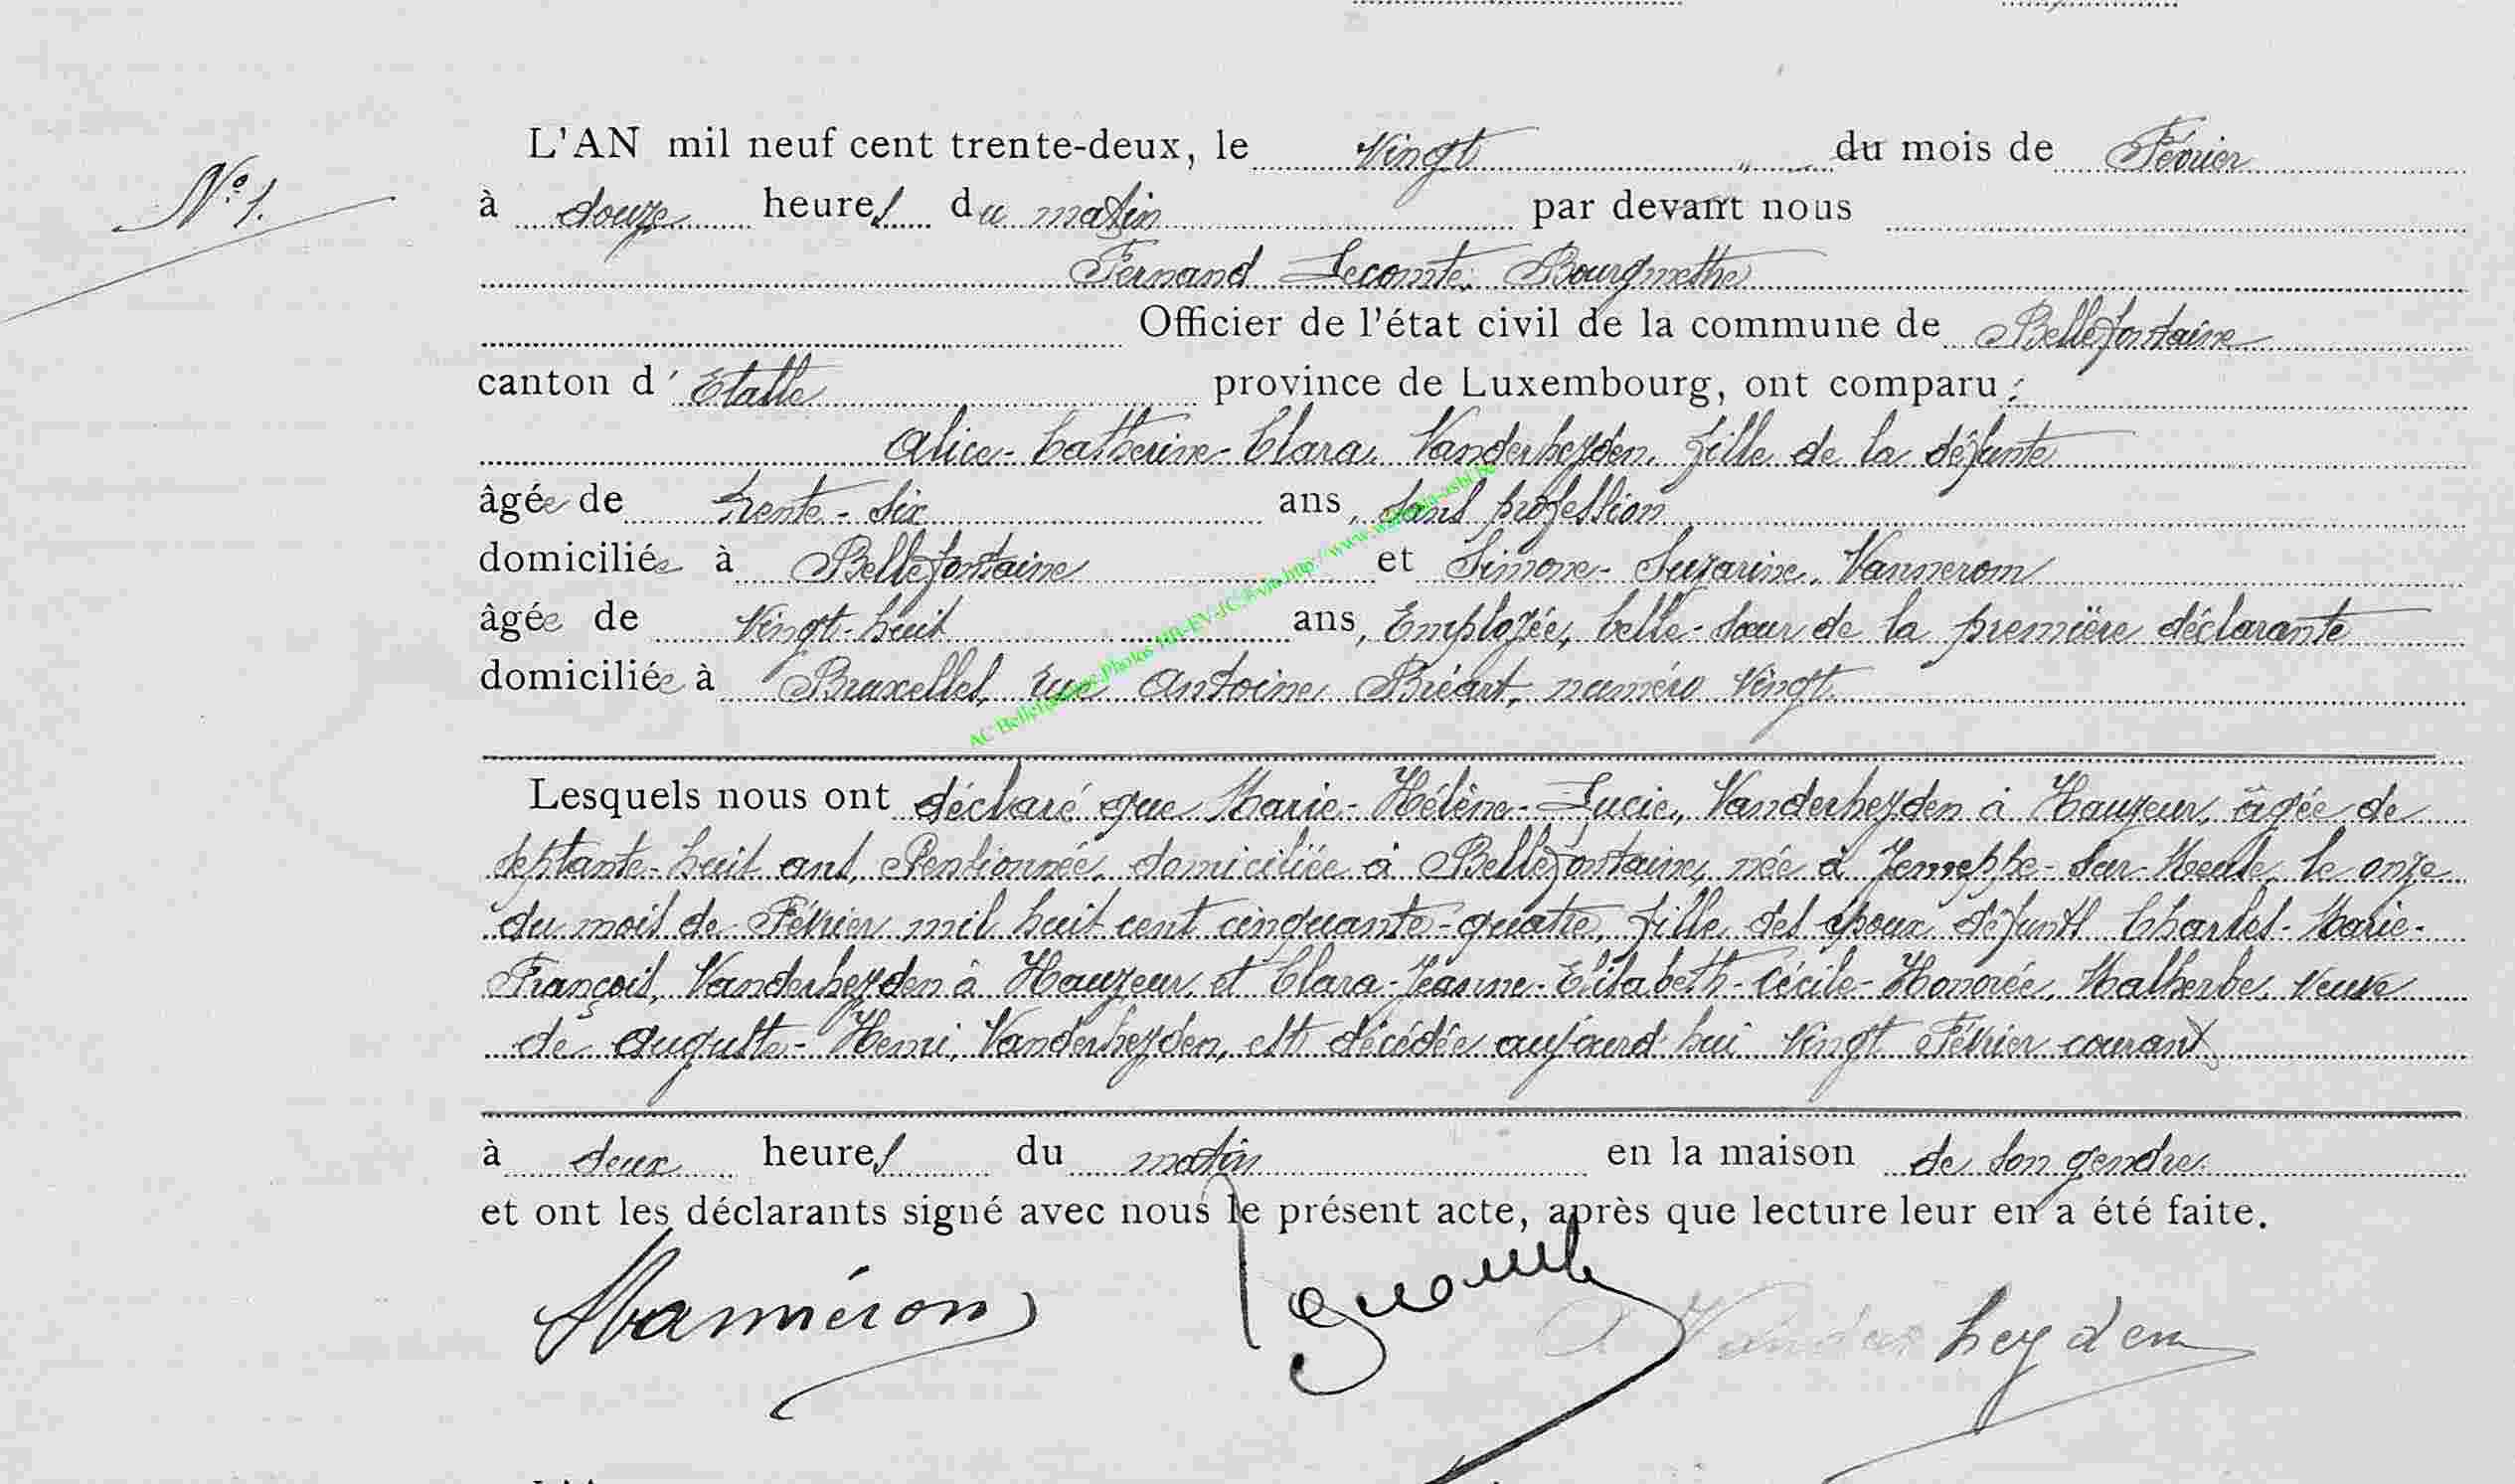 L'AN mil neuf cent trente-deux, le Vingt du mois de Février
N° 1.
à douze heures du matin par devant nous
Fernand Lecomte, Bourgmestre
Officier de l'état civil de la commune de Bellefontaine
canton d'Etalle province de Luxembourg, ont comparu :
Alice-Catherine-Clara, Vanderheyden, fille de la défunte
âgée de trente-six ans, sans profession
domiciliée à Bellefontaine et Simone-Suzanne, Vannerom
âgée de Vingt-huit ans, Employée, belle-sœur de la première déclarante
domiciliée à Bruxelles, rue Antoine Bréart, numéro Vingt
Lesquels nous ont déclaré que Marie-Hélène-Lucie, Vanderheyden à Hauzeur, âgée de
septante-huit ans, Pensionnée, domiciliée à Bellefontaine, née à Jemeppe-sur-Meuse, le onze
du mois de Février mil huit cent cinquante-quatre, fille des époux défunts Charles-Marie-
François, Vanderheyden à Hauzeur, et Clara-Jeanne-Elisabeth-Cécile-Honorée, Malherbe, veuve
de Auguste-Henri, Vanderheyden, est décédée aujourd'hui Vingt Février courant
à deux heures du matin en la maison de son gendre.
et ont les déclarants signé avec nous le présent acte, après que lecture leur en a été faite.
Vanderheyden